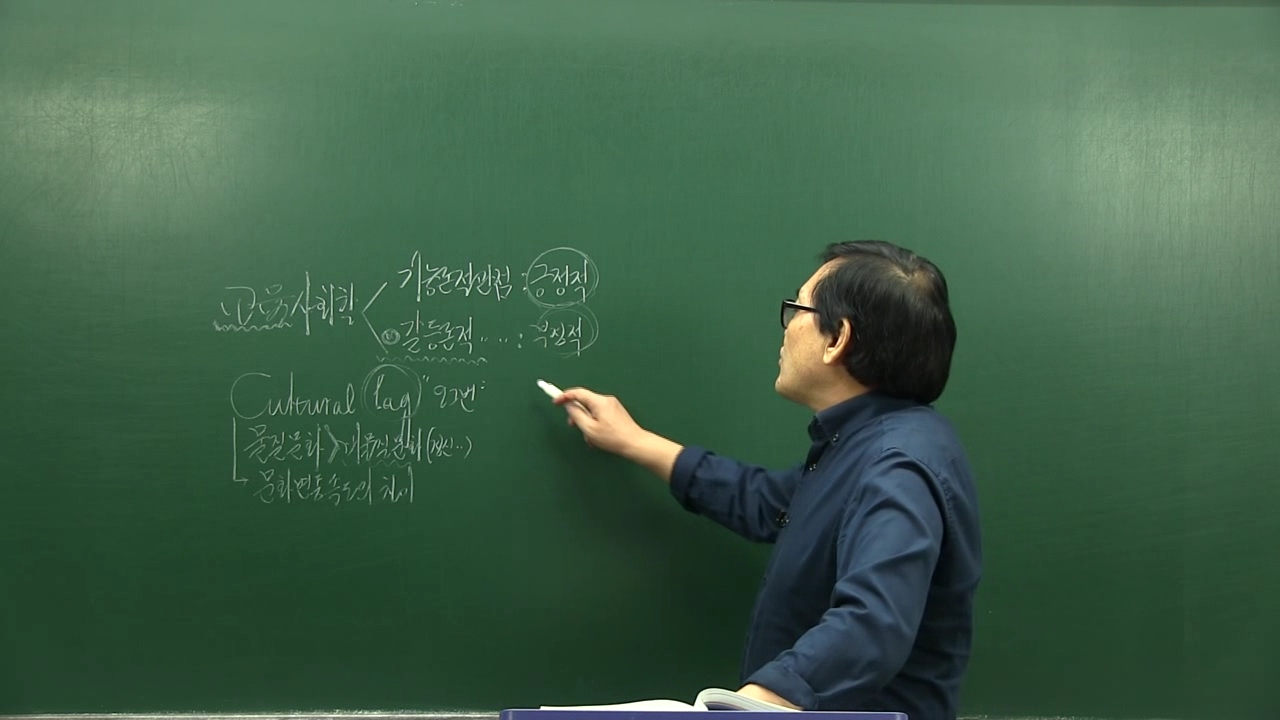 교육사회학
기능론적관점 : 긍정적
갈등론적 ‥‥ : 부정적
Cultural lag"
물질문화 > 비물질문화 (정신‥)
문화변동속도의 차이